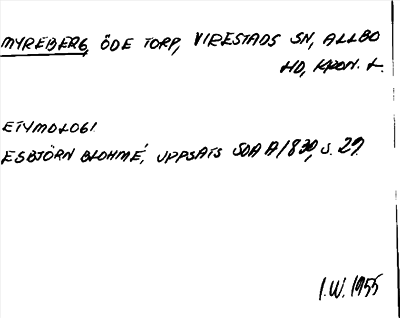 MYREBERG, ÖDE TORP, VIRESTADS SN, ALLBO
HD, KRON. L.
ETYMOLOGI.
ESBJÖRN BLOHMÉ, UPPSATS SOA A/830, s. 29.
I.W. 1955